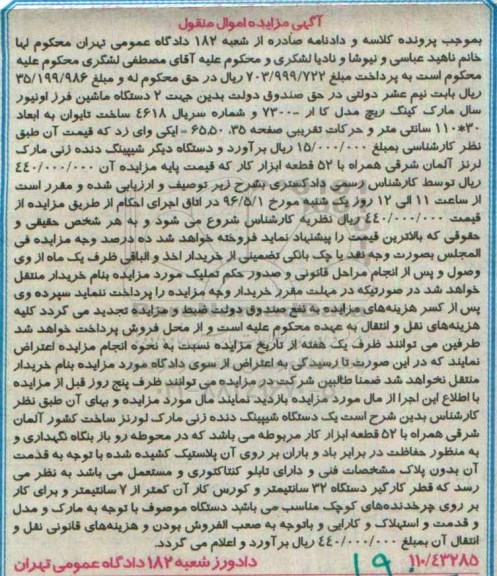 آگهی مزایده اموال منقول
بموجب پرونده کلاسه و دادنامه صادره از شعبه ۱۸۲ دادگاه عمومی تهران محکوم لها
خانم ناهید عباسی و نیوشا و نادیا لشگری و محکوم علیه آقای مصطفی لشگری محکوم علیه
محکوم است به پرداخت مبلغ ۷۰۳/۹۹۹/۷۲۲ ریال در حق محکوم له و مبلغ ۳۵/۱۹۹/۹۸۶
ریال بابت نیم عشر دولتی در حق صندوق دولت بدین جهت ۲ دستگاه ماشین فرز اونیور
سال مارک کینگ ریچ مدل کا ار ۷۳۰۰- و شماره سریال ۴۶۱۸ ساخت تایوان به ابعاد
۳۰*۱۱۰ سانتی متر و حرکات تقریبی صفحه ۳۵، ۶۵،۵۰ - ایکی وای زد که قیمت آن طبق
نظر کارشناسی بمبلغ ۱۵/۰۰۰/۰۰۰ ریال برآورد و دستگاه دیگر شیپینگ دنده زنی مارک
لرنز آلمان شرقی همراه با ۵۲ قطعه ابزار کار که قیمت پایه مزایده آن ۴۴۰/۰۰۰/۰۰۰
ریال توسط کارشناس رسمی دادگستری بشرح زیر توصیف و ارزیابی شده و مقرر است
از ساعت ۱۱ الی ۱۲ روز یک شنبه مورخ ۹۶/۵/۱ در اتاق اجرای احکام از طریق مزایده از
قیمت ۴۴۰/۰۰۰/۰۰۰ ریال نظریه کارشناس شروع می شود و به هر شخص حقیقی و
حقوقی که بالاترین قیمت را پیشنهاد نماید فروخته خواهد شد ده درصد وجه مزایده فی
المجلس بصورت وجه نقد یا چک بانکی تضمینی از خریدار اخذ و الباقی ظرف یک ماه از وی
وصول و پس از انجام مراحل قانونی و صدور حکم تملیک مورد مزایده بنام خریدار منتقل
خواهد شد در صورتیکه در مهلت مقرر خریدار وجه مزایده را پرداخت ننماید سپرده وی
پس از کسر هزینه‌های مزایده به نفع صندوق دولت ضبط و مزایده تجدید می گردد کلیه
هزینه‌های نقل و انتقال به عهده محکوم علیه است و از محل فروش پرداخت خواهد شد
طرفین می توانند ظرف یک هفته از تاریخ مزایده نسبت به نحوه انجام مزایده اعتراض
نمایند که در این صورت تا رسیدگی به اعتراض از سوی دادگاه مورد مزایده بنام خریدار
منتقل نخواهد شد ضمنا طالبین شرکت در مزایده می توانند ظرف پنج روز قبل از مزایده
با اطلاع این اجرا از مال مورد مزایده بازدید نمایند مال مورد مزایده و بهای آن طبق نظر
کارشناس بدین شرح است یک دستگاه شیپینگ دنده زنی مارک لورنز ساخت کشور آلمان
شرقی همراه با ۵۲ قطعه ابزار کار مربوطه می باشد که در محوطه رو باز بنگاه نگهداری و
به منظور حفاظت در برابر باد و باران بر روی آن پلاستیک کشیده شده با توجه به قدمت
آن بدون پلاک مشخصات فنی و دارای تابلو کنتاکتوری و مستعمل می باشد به نظر می
رسد که قطر کارگیر دستگاه ۳۲ سانتیمتر و کورس کار آن کمتر از ۷ سانتیمتر و برای کار
بر روی چرخدنده‌های کوچک مناسب می باشد دستگاه موصوف با توجه به مارک و مدل
و قدمت و استهلاک و کارایی و باتوجه به صعب الفروش بودن و هزینه‌های قانونی نقل و
انتقال آن بمبلغ ۴۴۰/۰۰۰/۰۰۰ ریال برآورد و اعلام می گردد.
۱۱۰/۴۳۲۸۵ دادورز شعبه ۱۸۲ دادگاه عمومی تهران
۱۹۰